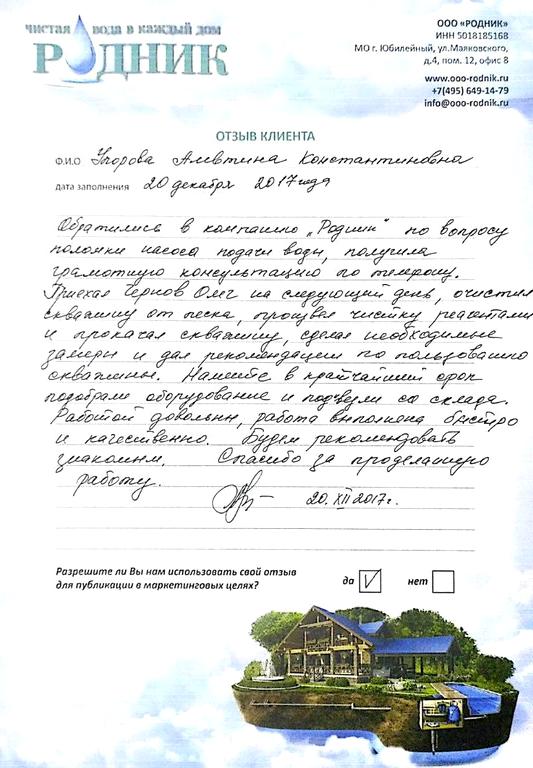 чистая вода в каждый дом
РОДНИК
ООО «РОДНИК»
ИНН 5018185168
МО г. Юбилейный, ул.Маяковского,
д.4, пом. 12, офис 8
www.ooo-rodnik.ru
+7(495) 649-14-79
info@ooo-rodnik.ru
ОТЗЫВ КЛИЕНТА
Ф.И.О Алевтина Константиновна
дата заполнения 20 декабря 2017 года
Обратились в компанию „Родник" по вопросу
поломки насоса подачи воды, получила
грамотную консультацию по телефону.
Приехал Чернов Олег на следующий день, очистил
скважину от песка, провел чистку реагентами
и прокачал скважину, сделал необходимые
замеры и дал рекомендации по пользованию
скважины. Нам в кратчайший срок
подобрали оборудование и подвезли со склада.
Работой довольны, работа выполнена быстро
и качественно. Будем рекомендовать
знакомым. Спасибо за проделанную
работу.
20.XII 2017г.
Разрешите ли Вы нам использовать свой отзыв
для публикации в маркетинговых целях?
да V нет